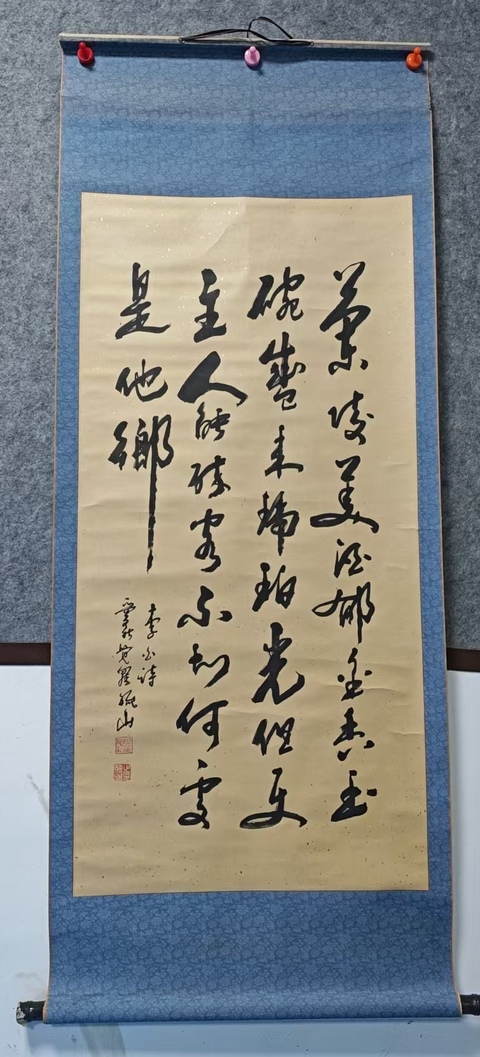 兰陵美酒郁金香玉
碗盛来琥珀光但使
主人能醉客不知何处
是他乡
李白诗